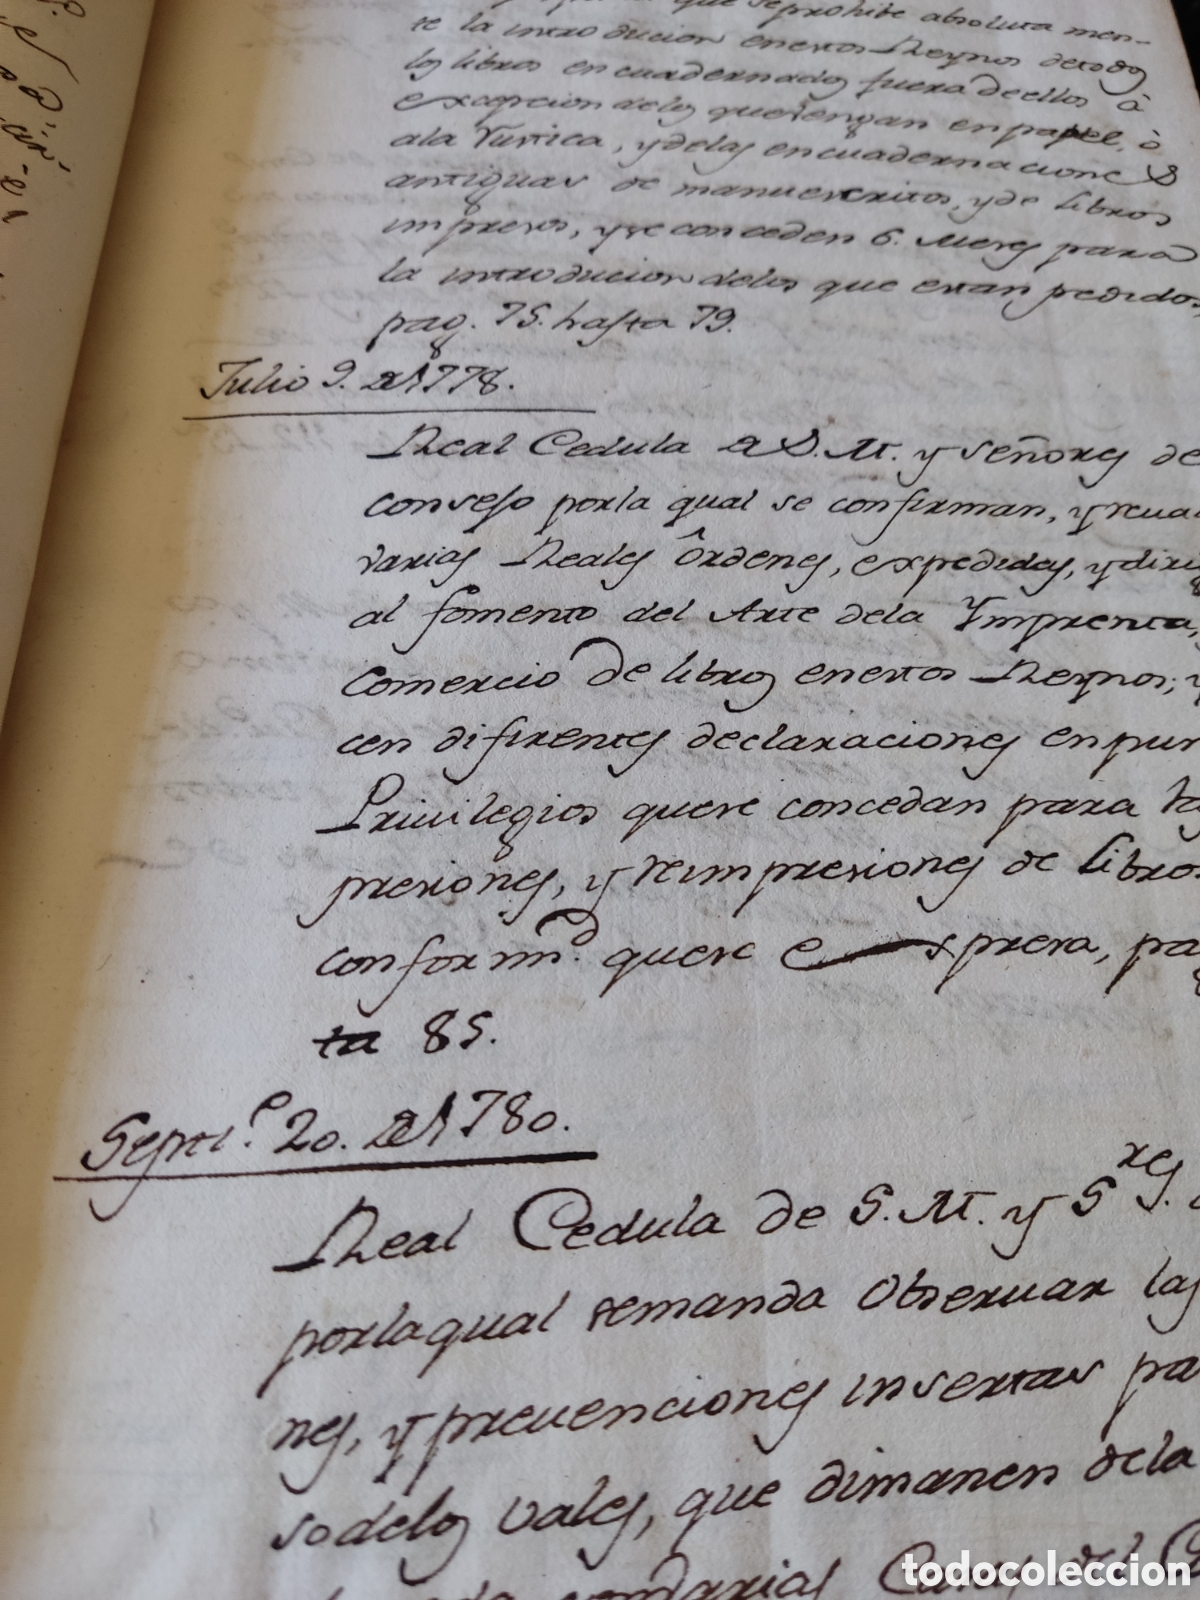 que se prohibe absoluta men-
te la introducion en estos Reynos de todos
los libros encuadernados fuera de ellos à
excepcion de los que vengan en papel, ò
ala Rustica, y de las encuadernaciones
antiguas de manuescritos, y de libros
impresos, y se conceden 6. Meses para
la introducion delos que estan pedidos,
pag. 75. hasta 79.
Julio 9. de 1778.
Real Cedula de S.M. y señores de
consejo porla qual se confirman, y
varias Reales Ôrdenes, expedidas, y
al fomento del Arte dela Ymprenta,
Comercio de libros en estos Reynos; y
cen difirentes declaraciones en
Privilegios que se concedan para
presiones, y reimpresiones de Libros
conform.d que se expresa,
ta 85.
Septi.e 20. de 1780.
Real Cedula de S.M. y Sres.
porlaqual semanda Observar las
nes, y prevenciones insertas pa
so delos vales, que dimanen dela
todocoleccion